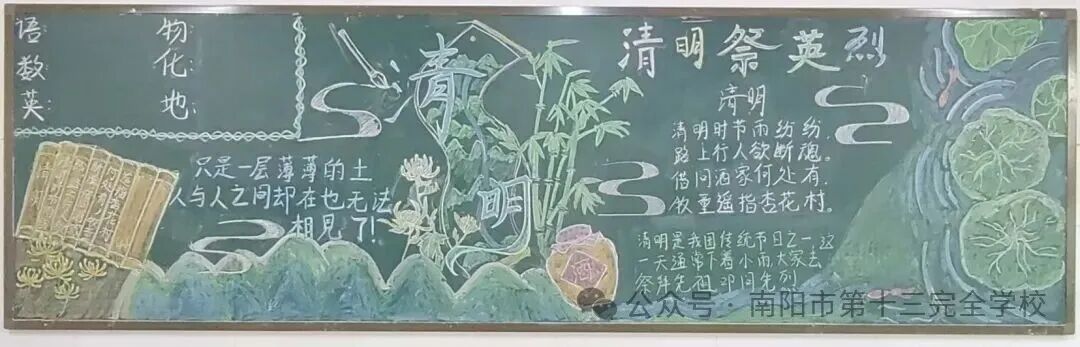 语： 物：
数： 化：
英： 地：
清明
只是一层薄薄的土
人与人之间却在也无法
相见了!
酒
清明祭英烈
清明
清明时节雨纷纷，
路上行人欲断魂。
借问酒家何处有，
牧童遥指杏花村。
清明是我国传统节日之一，这
一天通常下着小雨大家去
祭拜先祖 邓同先烈
公众号·南阳市第十三完全学校